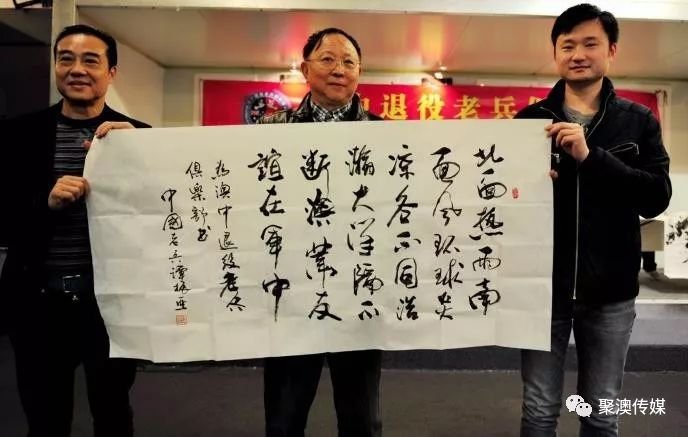 退役老兵
北面热雨南
面风环球炎
凉各不同浩
瀚大洋隔不
断澳華友
誼在軍中
为澳中退役老兵
俱樂部书
中國老兵譚
聚澳传媒